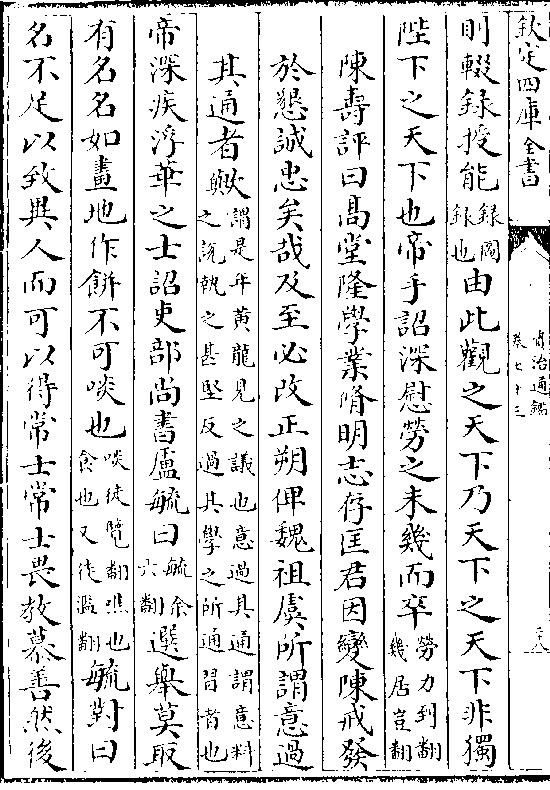 欽定四庫全書
資治通鑑
卷七十三
三十八
則輟錄授能錄圖錄也由此觀之天下乃天下之天下非獨
陛下之天下也帝手詔深慰勞之未幾而卒勞力到翻幾居豈翻
陳壽評曰髙堂隆學業脩明志存匡君因變陳戒發
於懇誠忠矣哉及至必改正朔俾魏祖虞所謂意過
其通者歟謂是年黄龍見之議也意過其通謂意料之說執之甚堅反過其學之所通習者也
帝深疾浮華之士詔吏部尚書盧毓曰毓余六翻選舉莫取
有名名如畫地作餅不可啖也啖徒覽翻噍也食也又徒濫翻毓對曰
名不足以致異人而可以得常士常士畏教慕善然後